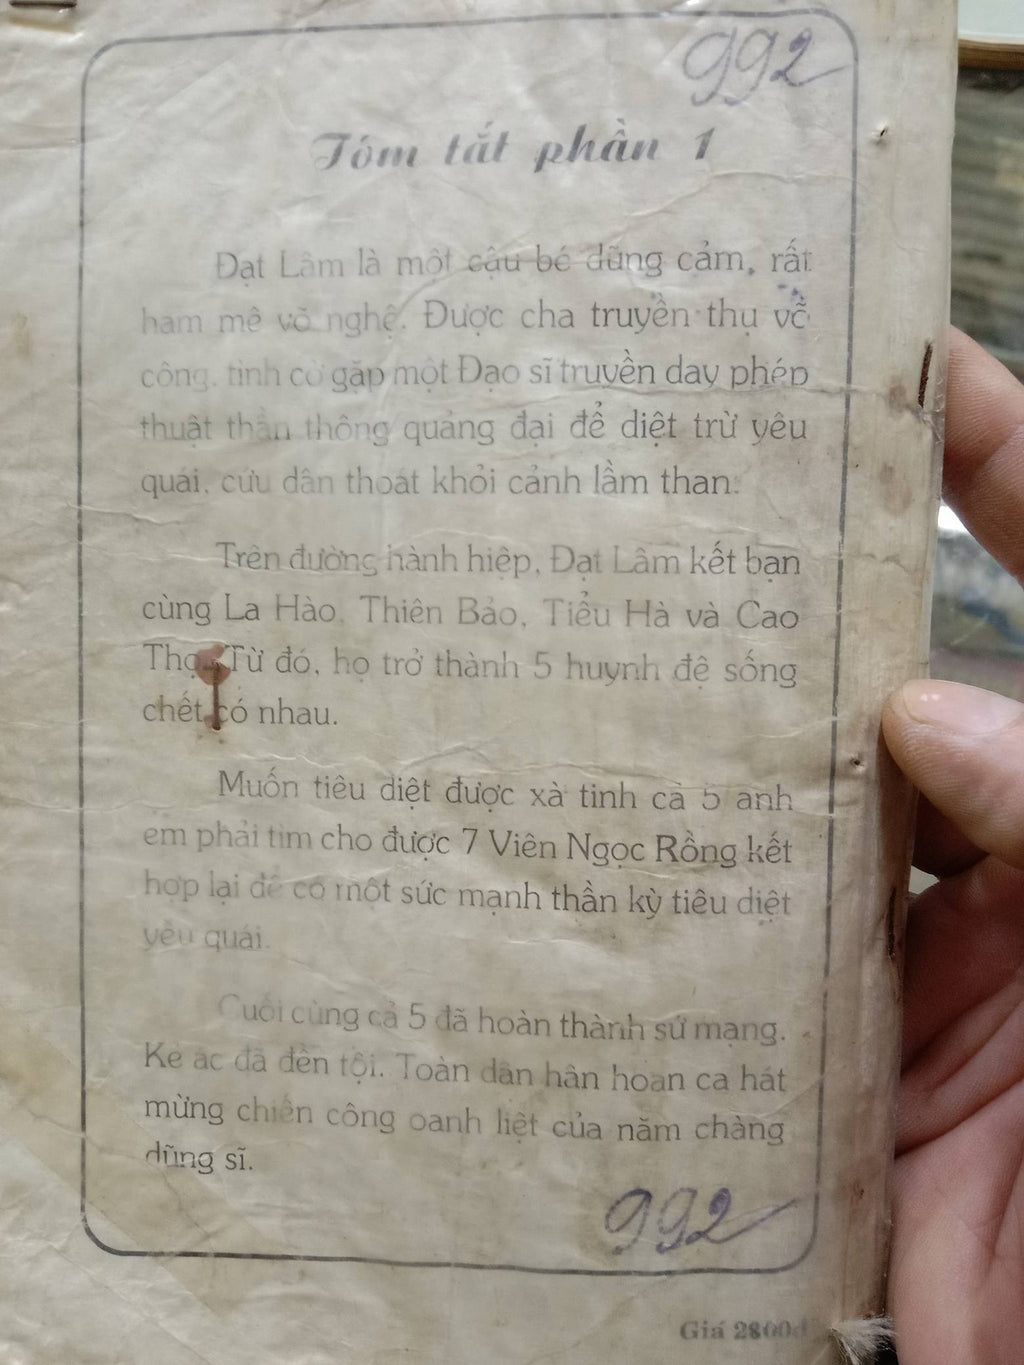 992
Tóm tắt phần 1
Đạt Lâm là một cậu bé dũng cảm, rất
ham mê võ nghệ. Được cha truyền thụ võ
công, tình cờ gặp một Đạo sĩ truyền dạy phép
thuật thần thông quảng đại để diệt trừ yêu
quái, cứu dân thoát khỏi cảnh lầm than.
Trên đường hành hiệp, Đạt Lâm kết bạn
cùng La Hào, Thiên Bảo, Tiểu Hà và Cao
Thọ. Từ đó, họ trở thành 5 huynh đệ sống
chết có nhau.
Muốn tiêu diệt được xà tinh cả 5 anh
em phải tìm cho được 7 Viên Ngọc Rồng kết
hợp lại để có một sức mạnh thần kỳ tiêu diệt
yêu quái.
Cuối cùng cả 5 đã hoàn thành sứ mạng.
Kẻ ác đã đền tội. Toàn dân hân hoan ca hát
mừng chiến công oanh liệt của năm chàng
dũng sĩ.
992
Giá 2800đ